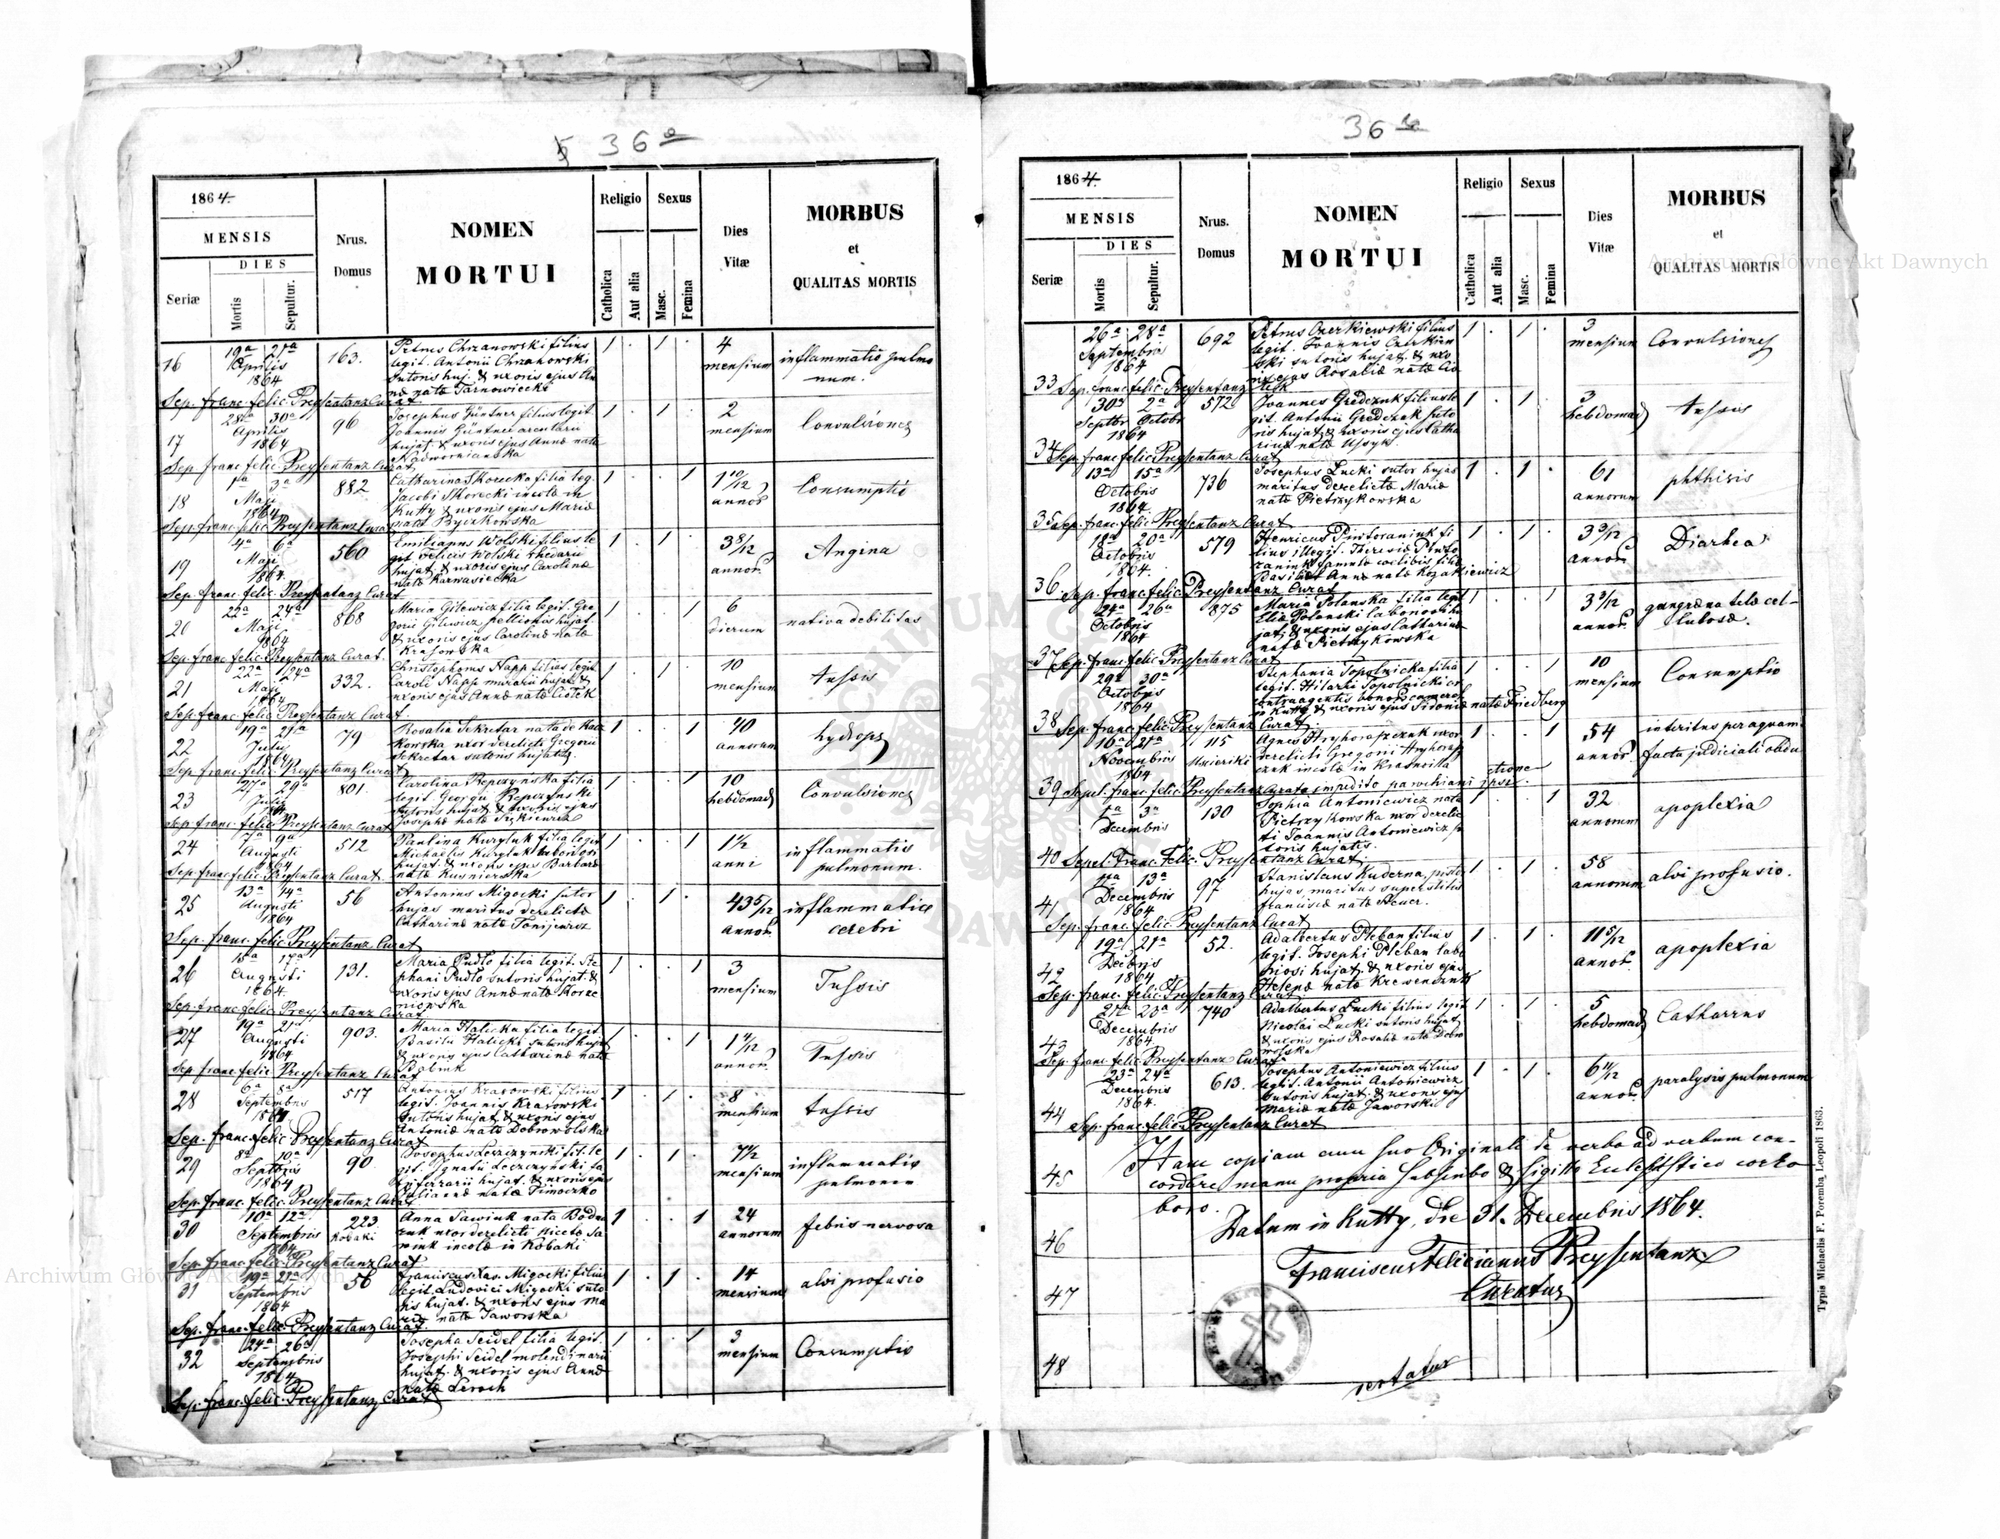 36 a
1864.
MENSIS
DIES
Seriæ
Mortis
Sepultur.
Nrus.
Domus
NOMEN
MORTUI
Religio
Catholica
Aut alia
Sexus
Masc.
Femina
Dies
Vitæ
MORBUS
et
QUALITAS MORTIS
16
19a 21a
Aprilis
1864
163.
Petrus Chrzanowski filius
legit. Antonii Chrzanowski
sutoris huj. & uxoris ejus An
næ natæ Tarnowiecka
1 . 1 .
4
mensium
inflammatio pulmo
num.
Sep. franc. felic. Preysentanz Curat
17
28a 30a
Aprilis
1864
96
Josephus Güntner filius legit.
Joannis Güntner arcularii
hujat. & uxoris ejus Annæ natæ
Nadwornianska
1 . 1 .
2
mensium
Convulsiones
Sep. franc. felic. Preysentanz Curat
18
1a 3a
Maji
1864
882
Catharina Skorecka filia leg.
Jacobi Skorecki incolæ in
Kutty & uxoris ejus Mariæ
natæ Byczkowska
1 . . 1
1 10/12
annor.
Consumptio
Sep. franc. felic. Preysentanz Curat
19
4a 6a
Maji
1864
560
Emilianus Wolski filius le
git. Felicis Wolski rhedarii
hujat. & uxoris ejus Carolinæ
natæ Karnasiecka
1 . 1 .
3 8/12
annor.
Angina
Sep. franc. felic. Preysentanz Curat
20
22a 24a
Maji
1864
868
Maria Gilewicz filia legit. Gre
gorii Gilewicz pellionis hujat.
& uxoris ejus Carolinæ natæ
Krasowska
1 . . 1
6
dierum
nativa debilitas
Sep. franc. felic. Preysentanz Curat.
21
22a 24a
Maji
1864
332.
Christophorus Napp filius legit.
Caroli Napp murarii hujat. &
uxoris ejus Annæ natæ Cistek
1 . 1 .
10
mensium
tussis
Sep. franc. felic. Preysentanz Curat.
22
19a 21a
July
1864
79
Rosalia Sekretar nata de Kacz
kowska uxor derelicti Gregorii
Sekretar sutoris hujatis.
1 . . 1
40
annorum
hydrops
Sep. franc. felic. Preysentanz Curat
23
27a 29a
Julii
1864
801.
Carolina Repczynska filia
legit. Georgii Repczynski
sutoris hujat. & uxoris ejus
Josephæ natæ Syzkiewicz
1 . . 1
10
hebdomad.
Convulsiones
Sep. franc. felic. Preysentanz Curat
24
7a 9a
Augusti
1864
512
Paulina Kuryluk filia legit.
Michaelis Kuryluk laboriosi
hujat. & uxoris ejus Barbaræ
natæ Kusnierska
1 . . 1
1 1/2
anni
inflammatio
pulmonum.
Sep. franc. felic. Preysentanz Curat.
25
13a 14a
Augusti
1864
56
Antonius Migocki sutor
hujas maritus derelictæ
Catharinæ natæ Tonijewicz
1 . 1 .
43 5/12
annor.
inflammatio
cerebri
Sep. franc. felic. Preysentanz Curat
26
15a 17a
Augusti
1864.
131.
Maria Pudlo filia legit. Ste
phani Pudlo sutoris hujat. &
uxoris ejus Annæ natæ Korze
niewska
1 . . 1
3
mensium
Tussis
Sep. franc. felic. Preysentanz Curat
27
19a 21a
Augusti
1864
903.
Maria Halicka filia legit.
Basilii Halicki sutoris hujat.
& uxoris ejus Catharinæ natæ
1 . . 1
1 4/12
annor.
Tussis
Sep. franc. felic. Preysentanz Curat
28
6a 8a
Septembris
1864
517
Antonius Krasowski filius
legit. Joannis Krasowski
sutoris hujat. & uxoris ejus
Antoniæ natæ Dobrowolska
1 . 1 .
8
mensium
tussis
Sep. franc. felic. Preysentanz Curat
29
8a 10a
Septbris
1864
90.
Josephus Leszczynski fil. le
git. Ignatii Leszczynski fa
bri ferrarii hujat. & uxoris ejus
Julianæ natæ Timoczko
1 . 1 .
7 1/2
mensium
inflammatio
pulmonum
Sep. franc. felic. Preysentanz Curat
30
10a 12a
Septembris
1864
223
Kobaki
Anna Sawiuk nata Bodna
ruk uxor derelicti Nicetæ Sa
wiuk incolæ in Kobaki
1 . . 1
24
annorum
febris nervosa
Sep. franc. felic. Preysentanz Curat
31
19a 21a
Septembris
1864
56
Franciscus Xav. Migocki filius
legit. Ludovici Migocki suto
ris hujat. & uxoris ejus Ma
riæ natæ Jaworska
1 . 1 .
14
mensium
alvi profusio
Sep. franc. felic. Preysentanz Curat.
32
24a 26a
Septembris
1864
Josepha Seidel filia legit.
Josephi Seidel molendinarii
hujat. & uxoris ejus Annæ
natæ Lerach
1 . . 1
3
mensium
Consumptio
Sep. franc. felic. Preysentanz Curat
36 b
1864.
MENSIS
DIES
Seriæ
Mortis
Sepultur.
Nrus.
Domus
NOMEN
MORTUI
Religio
Catholica
Aut alia
Sexus
Masc.
Femina
Dies
Vitæ
MORBUS
et
QUALITAS MORTIS
33
26a 28a
Septembris
1864
692
Petrus Czerkiewski filius
legit. Joannis Czerkiew
ski sutoris hujat. & uxo
ris ejus Rosaliæ natæ
1 . 1 .
3
mensium
Convulsiones
Sep. franc. felic. Preysentanz
34
30a 2a
Septbr. Octobr.
1864
572
Joannes Gredczuk filius le
git. Antonii Gredczuk suto
ris hujat. & uxoris ejus Catha
rinæ natæ Ujsyk.
1 . 1 .
3
hebdomad.
tussis
Sep. franc. felic. Preysentanz Curat
35
13a 15a
Octobris
1864.
736
Josephus Lucki sutor hujas
maritus derelictæ Mariæ
natæ Pietrzykowska
1 . 1 .
61
annorum
phthisis
Sep. franc. felic. Preysentanz Curat
36
18a 20a
Octobris
1864.
579
Henricus Pinforanink fi
lius illegit. Theresiæ
famulæ cœlibis filiæ
Basilii & Annæ natæ Kozakiewicz
1 . 1 .
3 3/12
annor.
Diarhea
Sep. franc. felic. Preysentanz Curat
37
24a 26a
Octobris
1864
875
Maria Polanska filia legit.
Eliæ Polanski laboriosi hu
jat. & uxoris ejus Catharinæ
natæ Pietrzykowska
1 . . 1
3 3/12
annor.
gangræna telæ cel-
lulosæ.
Sep. franc. felic. Preysentanz Curat
38
29a 30a
Octobris
1864
Stephania Topolnicka filia
legit. Hilarii Topolnicki
contraagentis bonor. cameral.
in Kutty & uxoris ejus Sidoniæ natæ Friedberg
1 . . 1
10
mensium
Consumptio
Sep. franc. felic. Preysentanz Curat
39
16a 21a
Novembris
1864
115
Agnes Hryhorasczuk uxor
derelicti Gregorii Hryhorasz
czuk incolæ in Krasnoilla
1 . . 1
54
annor.
interitus per aquam
facta judiciali obdu
ctione
Sepel. franc. felic. Preysentanz Curato impedito parochiani ipsi.
40
1a 3a
Decembris
130
Sophia Antoniewicz nata
Pietrzykowska uxor derelic
ti Joannis Antoniewicz su
toris hujatis.
1 . . 1
32
annorum
apoplexia
Sepel. Franc. Felic. Preysentanz Curat
41
11a 13a
Decembris
1864
97
Stanislaus Kuderna, pistor
hujas maritus superstitis
Franciscæ natæ Hener.
1 . 1 .
58
annorum
alvi profusio.
Sep. franc. felic. Preysentanz Curat
42
19a 21a
Decbris
1864
52.
Adalbertus Pleban filius
legit. Josephi Pleban labo
riosi hujat. & uxoris ejus
Helenæ natæ
1 . 1 .
11 5/12
annor.
apoplexia
Sep. franc. felic. Preysentanz Curat
43
21a 23a
Decembris
1864.
740
Adalbertus Lucki filius legit.
Nicolai Lucki sutoris hujat.
& uxoris ejus Rosaliæ natæ Dobro
wolska
1 . 1 .
5
hebdomad.
Catharrus
Sep. franc. felic. Preysentanz Curat
44
23a 24a
Decembris
1864.
613.
Josephus Antoniewicz filius
legit. Antonii Antoniewicz
sutoris hujat. & uxoris ejus
Mariæ natæ Jaworski
1 . 1 .
6 11/12
annor.
paralysis pulmonum
Sep. franc. felic. Preysentanz Curat
45
Hanc copiam cum suo Originali de verbo ad verbum con-
cordare manu propria subscribo & sigillo Ecclesiastico corro
boro.
46
Datum in Kutty, die 31. Decembris 1864.
Franciscus Felicianus Preysentanz
Curatus
47
48
Typis Michaelis F. Poremba Leopoli 1863.
Archiwum Główne Akt Dawnych
Archiwum Główne Akt Dawnych